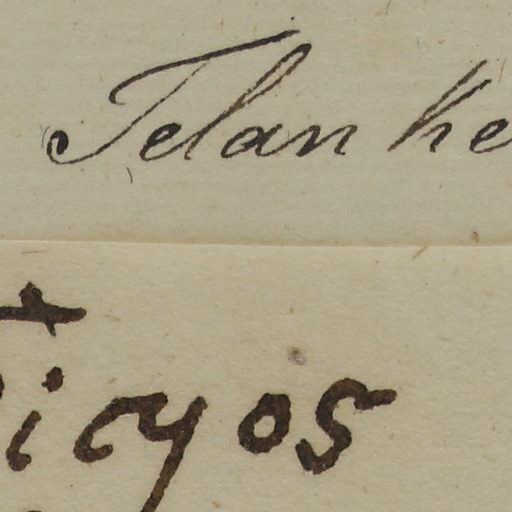 Telan he
icyos